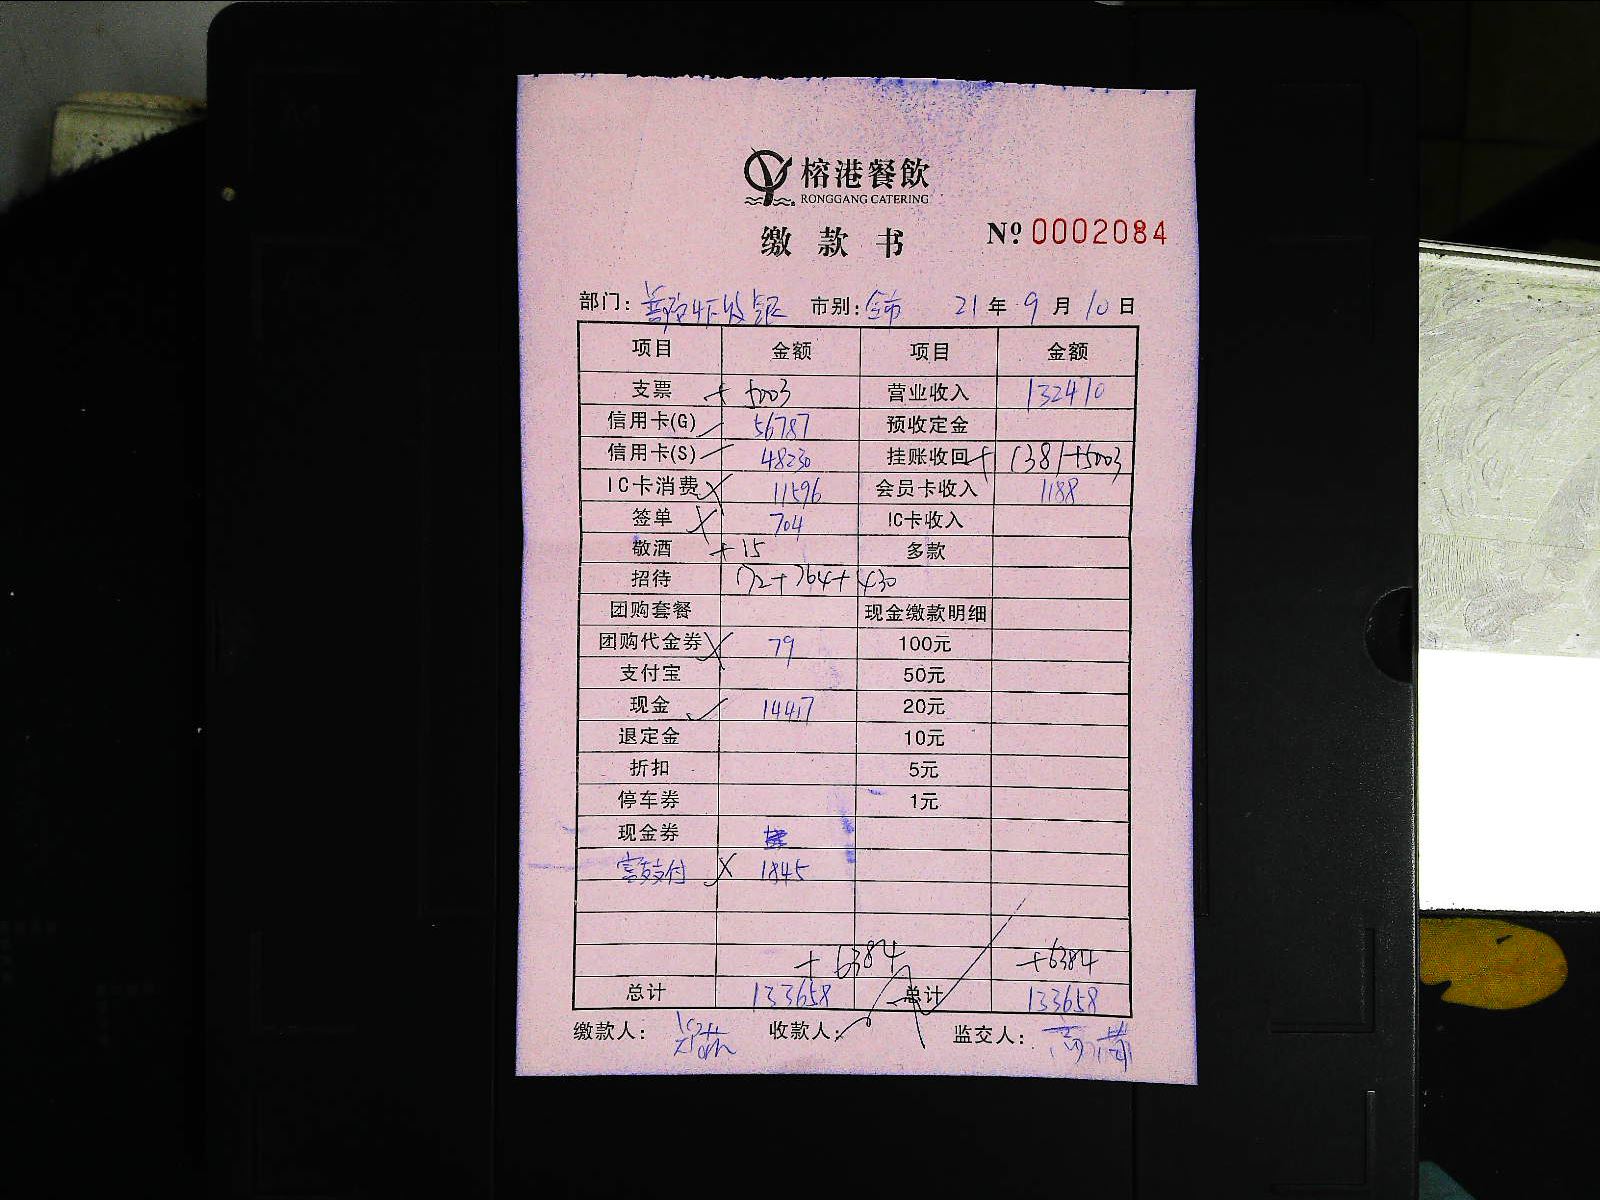 榕港餐飲
RONGGANG CATERING
缴款书 Nº 0002084
部门: 市别: 全市 21年9月10日
项目 金额 项目 金额
支票 + 5003 营业收入 132410
信用卡(G) 56787 预收定金
信用卡(S) 48230 挂账收回 + 1381+5003
IC卡消费 × 11596 会员卡收入 1188
签单 × 704 IC卡收入
敬酒 +15 多款
招待 172+764+430
团购套餐 现金缴款明细
团购代金券 × 79 100元
支付宝 50元
现金 ✓ 14417 20元
退定金 10元
折扣 5元
停车券 1元
现金券
支付 × 1845
+ 6384 +6384
总计 133658 总计 133658
缴款人: 收款人: 监交人: